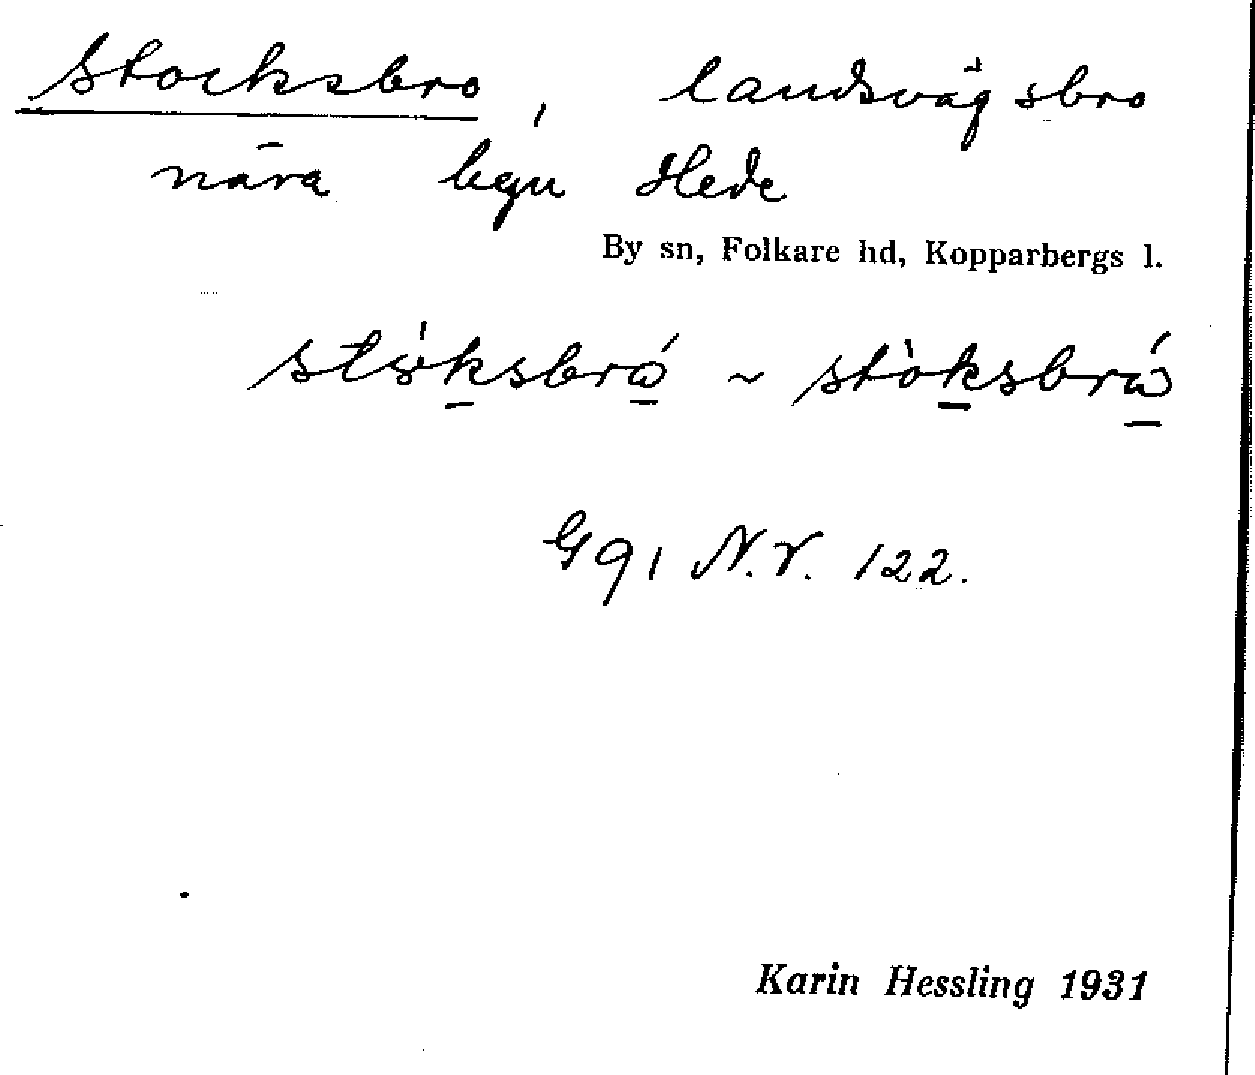 Stocksbro, landsvägsbro
nära byn Hede
By sn, Folkare hd, Kopparbergs l.
~
G 91 N.V. 122.
Karin Hessling 1931